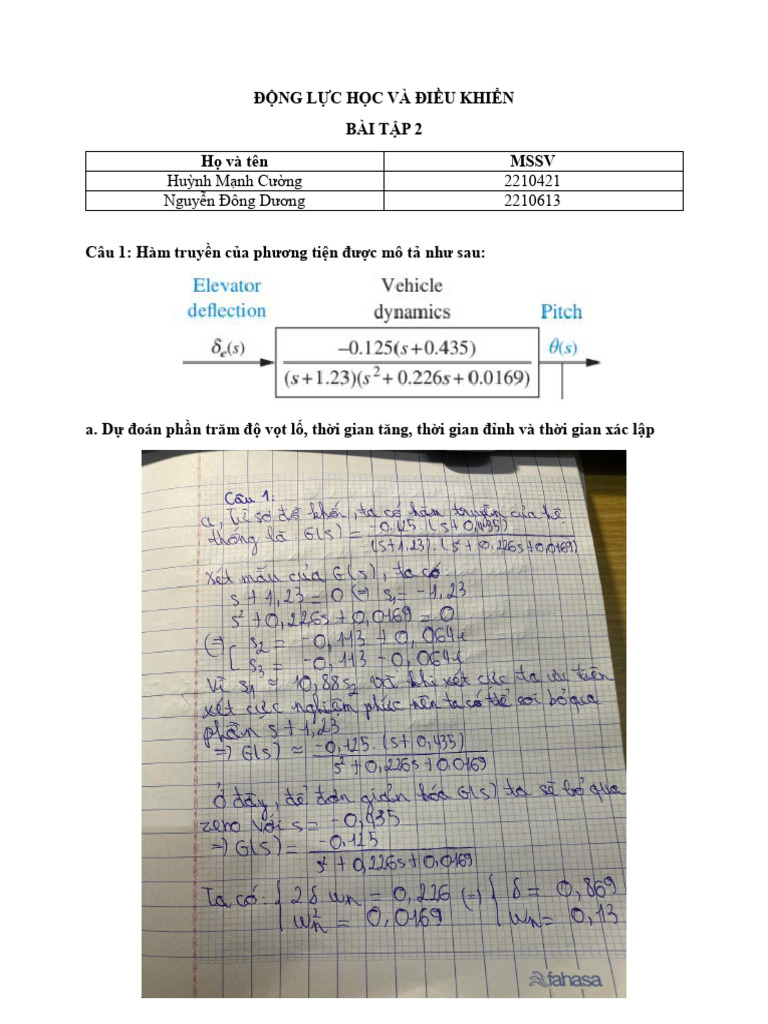 ĐỘNG LỰC HỌC VÀ ĐIỀU KHIỂN
BÀI TẬP 2
Họ và tên MSSV
Huỳnh Mạnh Cường 2210421
Nguyễn Đông Dương 2210613
Câu 1: Hàm truyền của phương tiện được mô tả như sau:
Elevator deflection
Vehicle dynamics
Pitch
δe(s)
−0.125(s+0.435)
(s+1.23)(s²+0.226s+0.0169)
θ(s)
a. Dự đoán phần trăm độ vọt lố, thời gian tăng, thời gian đỉnh và thời gian xác lập
Câu 1:
a, Từ sơ đồ khối, ta có hàm truyền của hệ
thống là: G(s) = −0,125.(s+0,435) / (s+1,23).(s²+0,226s+0,0169)
Xét mẫu của G(s), ta có:
s + 1,23 = 0 (=) s₁ = −1,23
s² + 0,226s + 0,0169 = 0
(=) [ s₂ = −0,113 + 0,064i
[ s₃ = −0,113 − 0,064i
Vì s₁ ≈ 10,88s₂ và khi xét cực ta ưu tiên
xét cực nghiệm phức nên ta có thể coi bỏ qua
phần s+1,23
=) G(s) ≈ −0,125.(s+0,435) / s²+0,226s+0,0169
Ở đây, để đơn giản hóa G(s) ta sẽ bỏ qua
zero với s = −0,435
=) G(s) = −0,125 / s²+0,226s+0,0169
Ta có: { 2δωn = 0,226 (=) { δ = 0,869
{ ωn² = 0,0169 { ωn = 0,13
fahasa